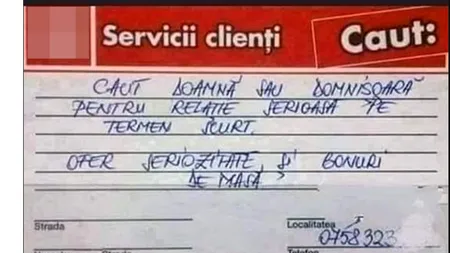 Servicii clienți
Caut:
CAUT DOAMNĂ SAU DOMNIȘOARĂ
PENTRU RELATIE SERIOASA PE
TERMEN SCURT.
OFER SERIOZITATE, ȘI BONURI
DE MASĂ
Strada
Localitatea
0758323